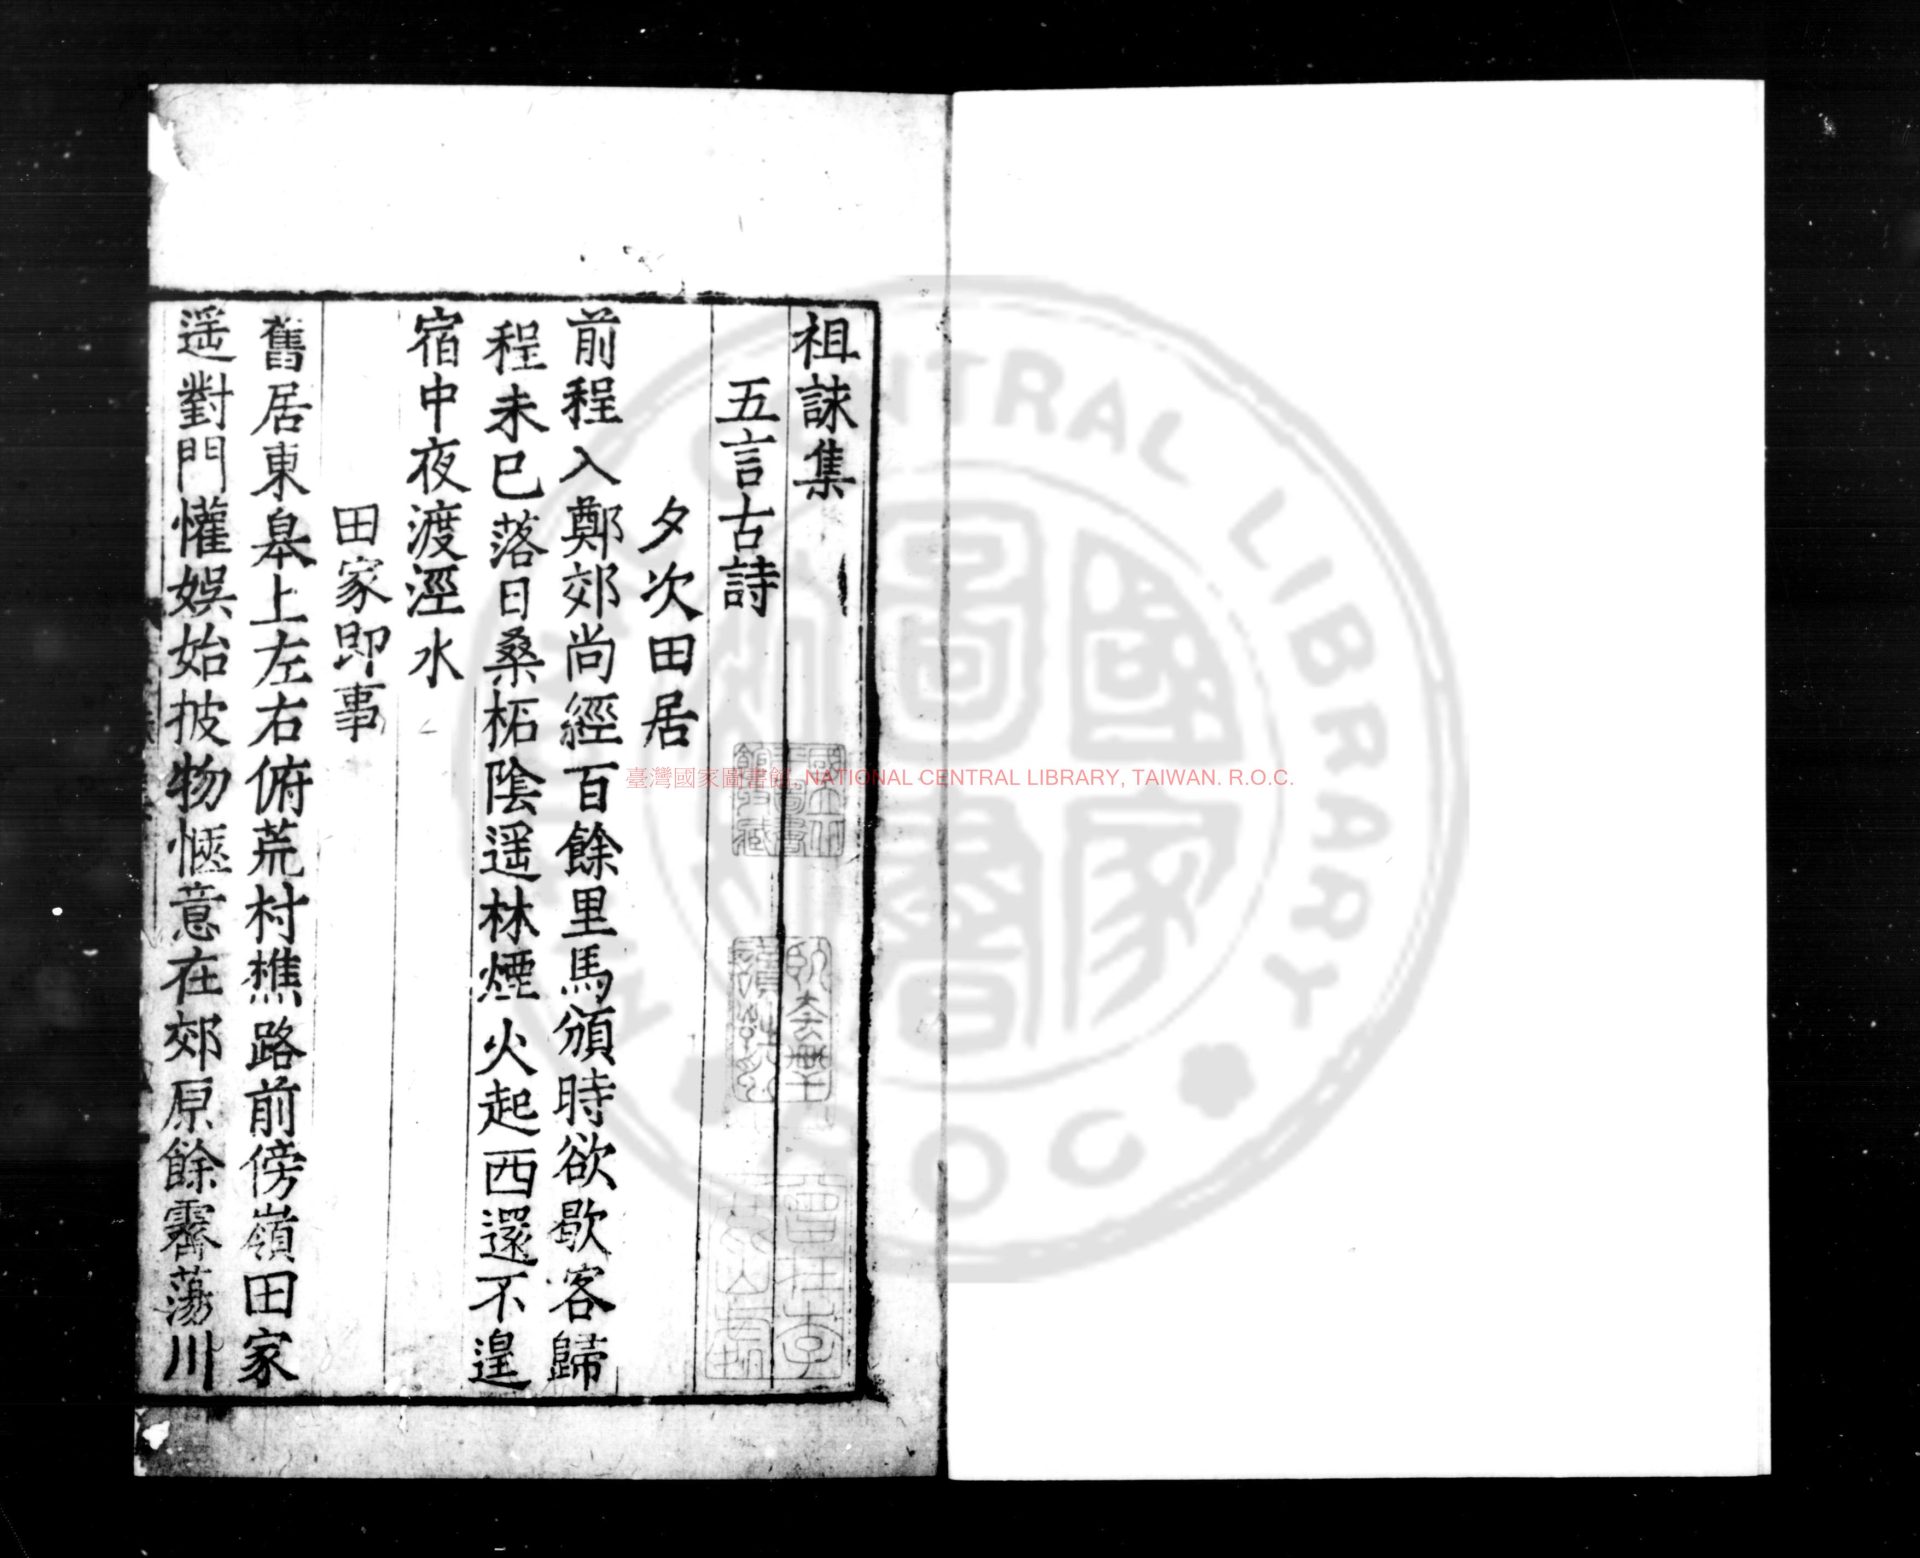 祖詠集
五言古詩
夕次田居
前程入鄭郊尚經百餘里馬煩時欲歇客歸
程未已落日桑柘陰遥林煙火起西還不遑
宿中夜渡涇水
田家即事
舊居東皋上左右俯荒村樵路前傍嶺田家
遥對門懽娛始披物愜意在郊原餘霽蕩川
臺灣國家圖書館, NATIONAL CENTRAL LIBRARY, TAIWAN. R.O.C.
國家圖書
CENTRAL LIBRARY
R O C